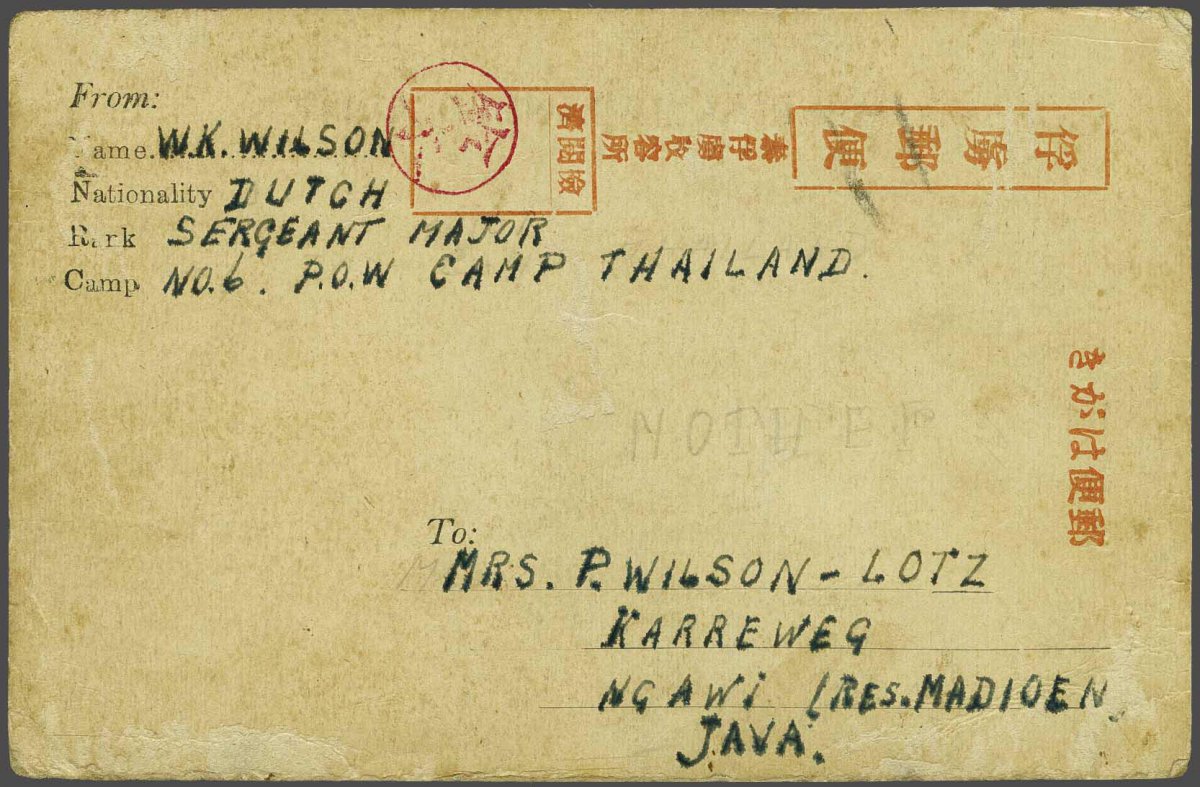 From:
Name. W.K. WILSON
Nationality DUTCH
Rank SERGEANT MAJOR
Camp NO.6. P.O.W CAMP THAILAND.
檢閲濟
泰俘虜收容所
俘虜郵便
郵便はがき
To:
MRS. P. WILSON - LOTZ
KARREWEG
NGAWI (RES. MADIOEN
JAVA.